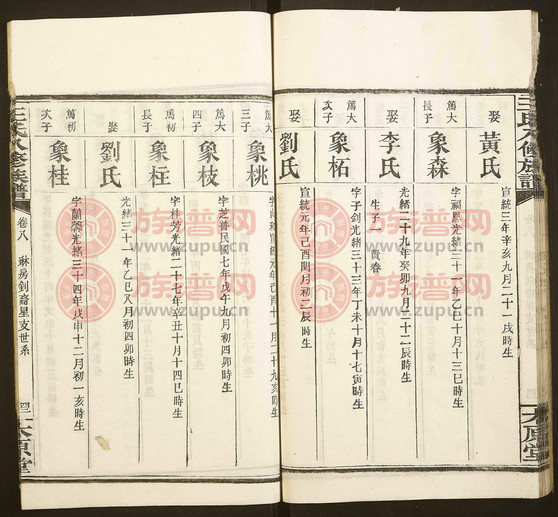 王氏八修族譜
太原堂
娶
黃氏
宣統三年辛亥九月二十一戌時生
篤大長子
象森
光緒三十一年乙巳十月十三巳時生
娶
李氏
光緒二十九年癸卯九月二十二辰時生
生子一
貴春
篤大次子
象柘
字子釗光緒三十三年丁未十月十七寅時生
娶
劉氏
宣統元年己酉閏月初二辰時生
篤大三子
象桃
元年己酉十一月二十九亥時生
篤大四子
象枝
字芝普民國七年戊午九月初四卯時生
篤初長子
象枉
字桂芳光緒二十七年辛丑十月十四巳時生
娶
劉氏
光緒三十一年乙巳八月初四卯時生
篤初次子
象桂
光緒三十四年戊申十二月初一亥時生
王氏八修族譜
卷八
琳房釗裔星支世系
太原堂
族譜网
www.zupu.cn
族譜网
www.zupu.cn
族譜网
www.zupu.cn
族譜网
www.zupu.cn